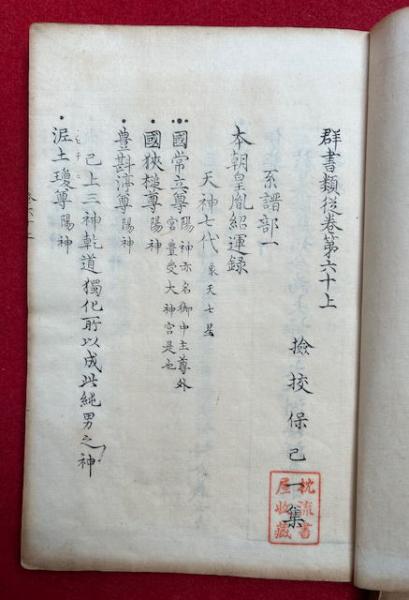 群書類從卷第六十上
撿挍保己一集
系譜部一
本朝皇胤紹運録
天神七代 象天七星
國常立尊 陽神亦名御中主尊外
宮豊受大神宮是也
國狹槌尊 陽神
豊斟渟尊 陽神
己上三神乾道獨化所以成此純男之神
泥土瓊尊 陽神
枕流書
屋收藏